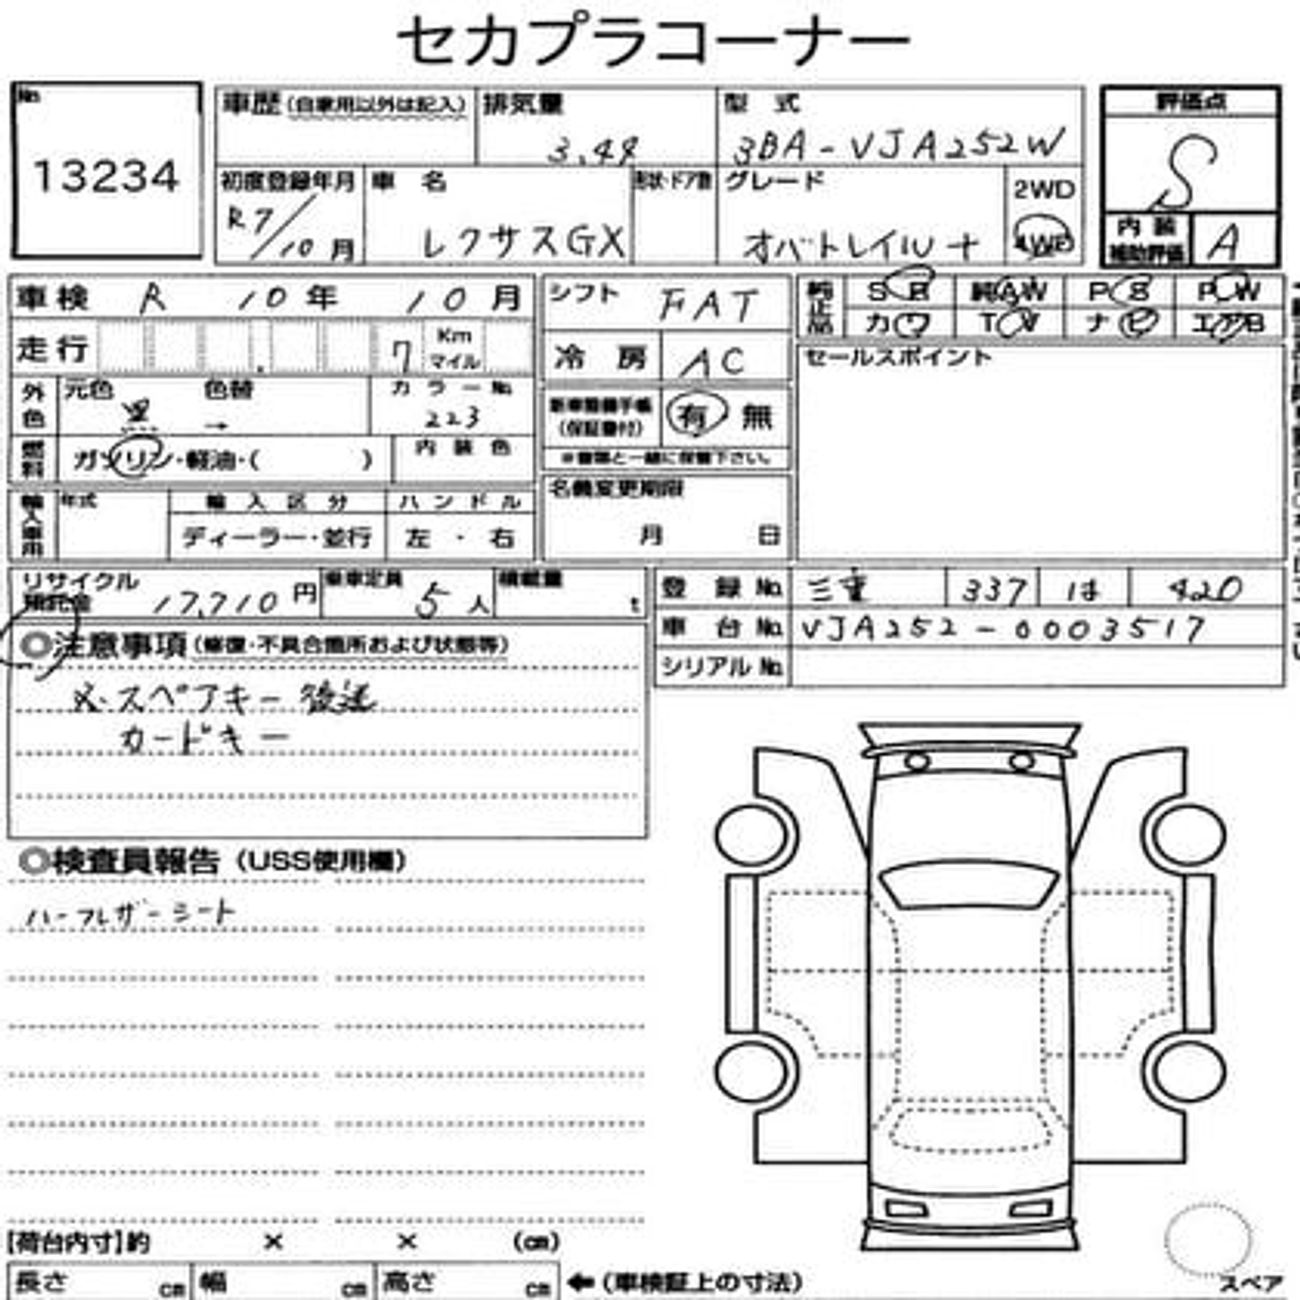 セカプラコーナー
No.
13234
車歴 (自家用以外は記入)
排気量
3.4
型 式
3BA-VJA252W
評価点
S
初度登録年月
R7/10月
車 名
レクサスGX
形状・ドア数
グレード
オバトレイル+
2WD
4WD
内 装
補助評価
A
車検 R 10年 10月
シフト
FAT
純正品
SR 純AW PS PW
カワ TV ナビ エアB
走行 7 Km マイル
冷 房
AC
セールスポイント
外色
元色
黒
色替
→
カラーNo.
223
新車整備手帳
(保証書付)
有 無
※書類と一緒に保管下さい。
燃料
ガソリン・軽油・( )
内 装 色
名義変更期限
月 日
輸入車用
年式
輸 入 区 分
ディーラー・並行
ハ ン ド ル
左 ・ 右
リサイクル
預託金 17,710円
乗車定員
5人
積載量
t
登 録 No. 三重 337 は 420
車 台 No. VJA252-0003517
シリアル No.
◎注意事項(修復・不具合箇所および状態等)
※.スペアキー 後送
カードキー
◎検査員報告(USS使用欄)
ハーフレザーシート
[荷台内寸]約 × × (cm)
長さ cm 幅 cm 高さ cm ←(車検証上の寸法)
スペア